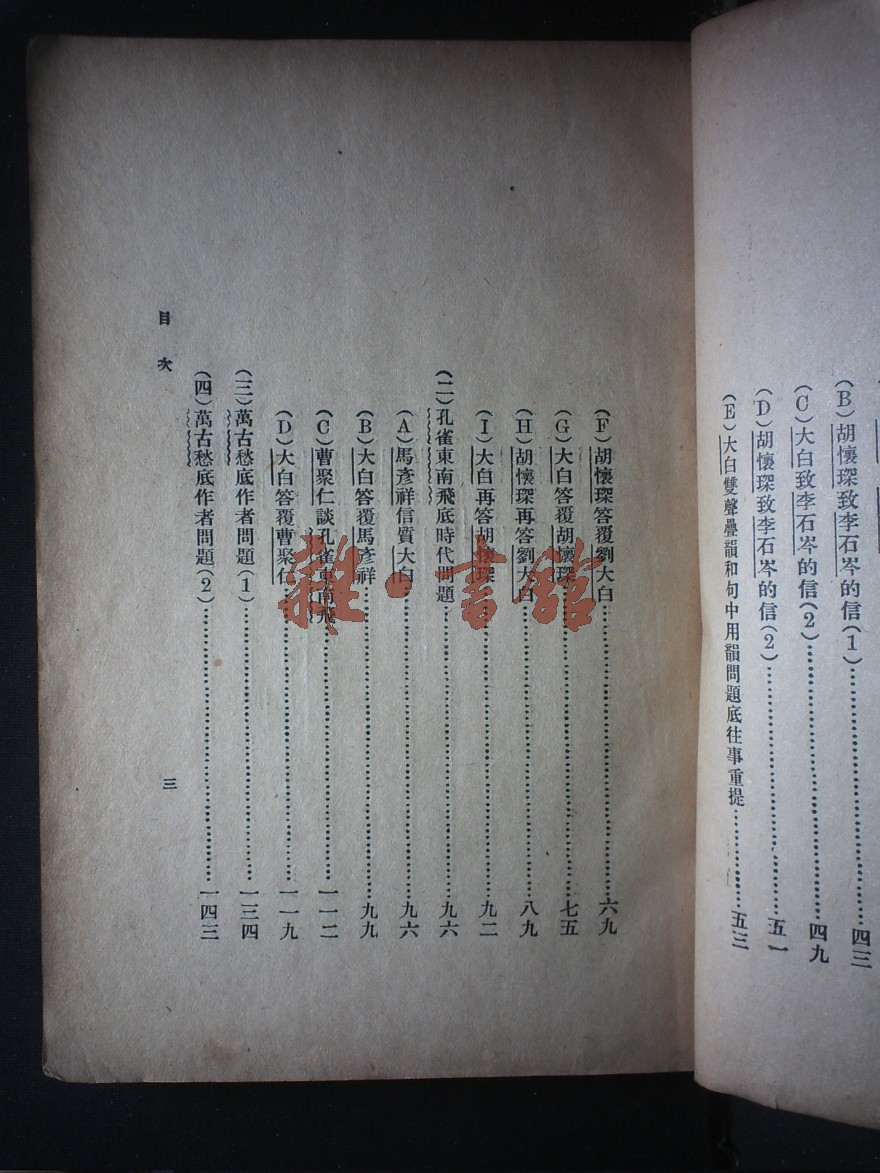 (B)胡懷琛致李石岑的信(1)……四三
(C)大白致李石岑的信(2)……四九
(D)胡懷琛致李石岑的信(2)……五一
(E)大白雙聲疊韻和句中用韻問題底往事重提……五三
(F)胡懷琛答覆劉大白……六九
(G)大白答覆胡懷琛……七五
(H)胡懷琛再答劉大白……八九
(I)大白再答胡懷琛……九二
(二)孔雀東南飛底時代問題……九六
(A)馬彥祥信質大白……九六
(B)大白答覆馬彥祥……九九
(C)曹聚仁談孔雀東南飛……一一二
(D)大白答覆曹聚仁……一一九
(三)萬古愁底作者問題(1)……一三四
(四)萬古愁底作者問題(2)……一四三
目次
三
雜·書館